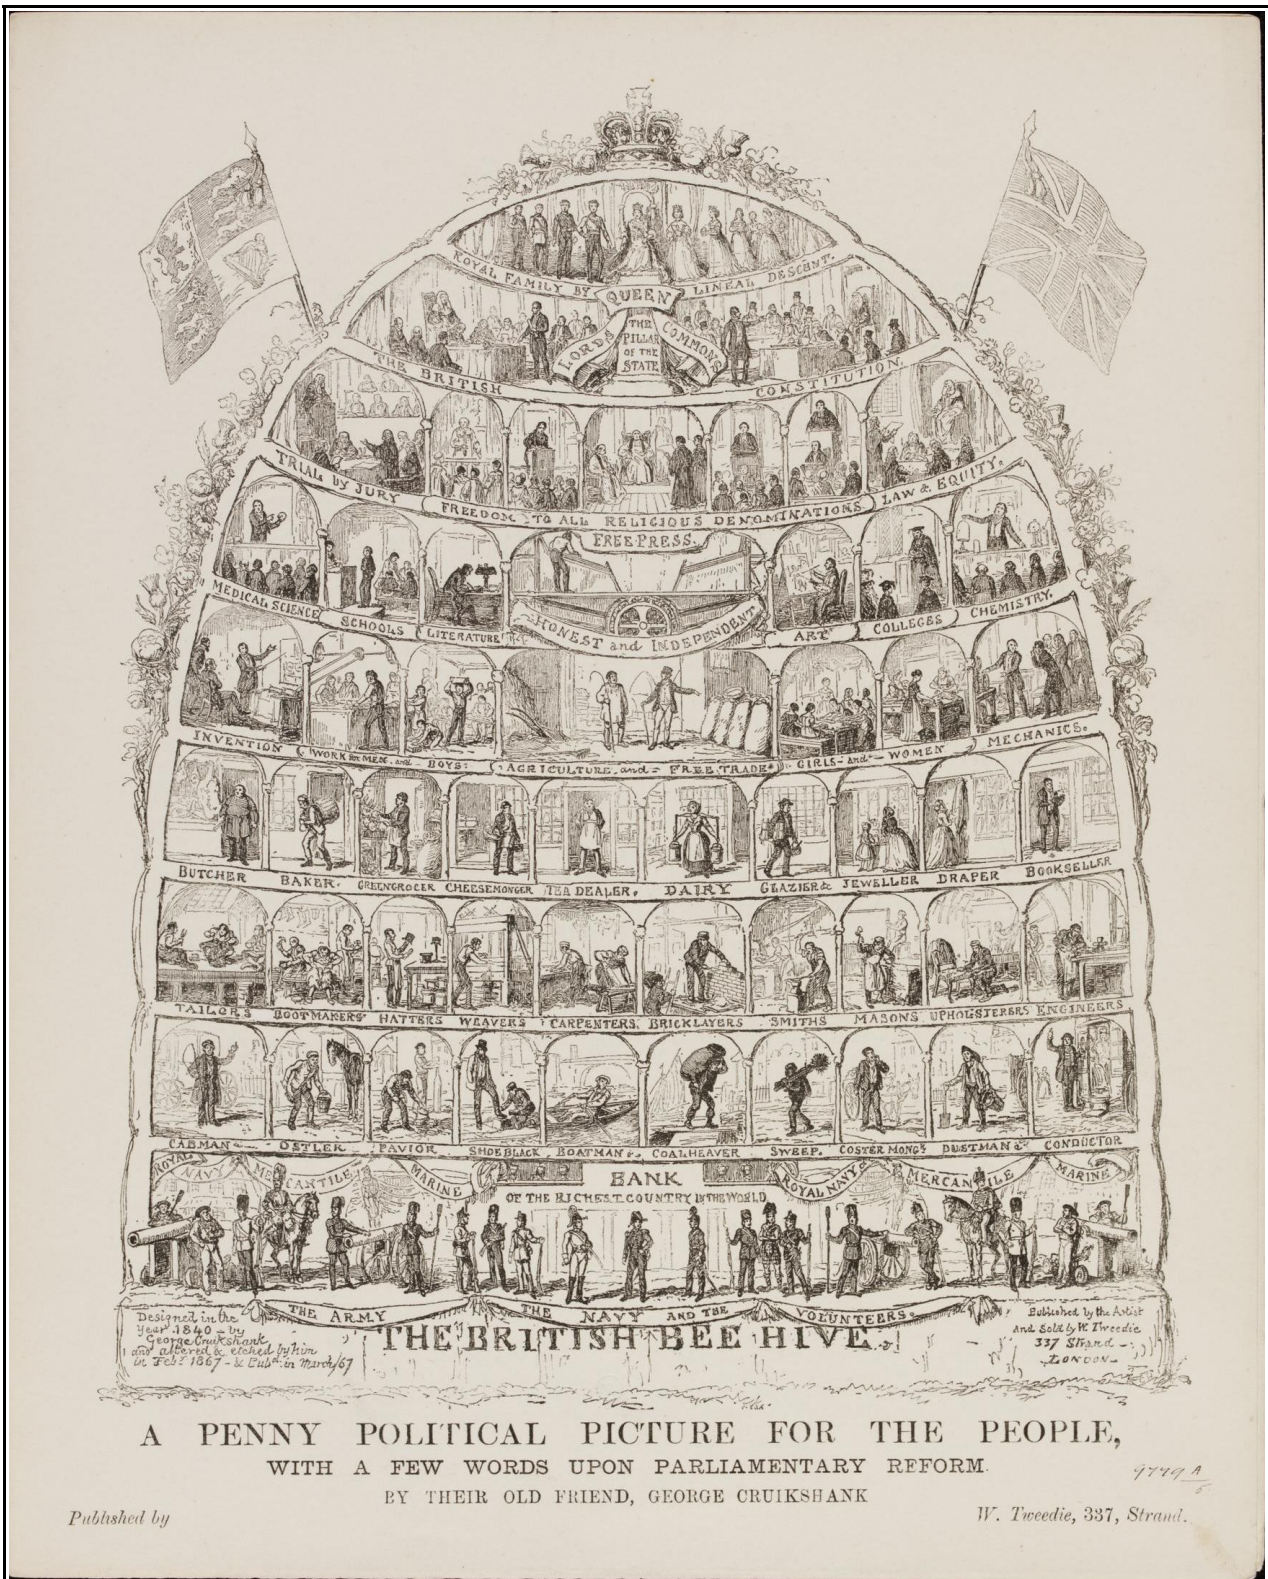 ROYAL FAMILY BY QUEEN LINEAL DESCENT.
LORDS THE PILLAR OF THE STATE COMMONS
THE BRITISH CONSTITUTION.
TRIAL by JURY FREEDOM TO ALL RELIGIOUS DENOMINATIONS LAW & EQUITY.
FREE PRESS.
HONEST and INDEPENDENT
MEDICAL SCIENCE SCHOOLS LITERATURE ART COLLEGES CHEMISTRY.
INVENTION WORK for MEN and BOYS: AGRICULTURE and FREE TRADE GIRLS and WOMEN MECHANICS.
BUTCHER BAKER. GREENGROCER CHEESEMONGER TEA DEALER. DAIRY GLAZIER & JEWELLER DRAPER BOOKSELLER
TAILORS BOOTMAKERS HATTERS WEAVERS CARPENTERS. BRICKLAYERS SMITHS MASONS UPHOLSTERERS ENGINEERS
CABMAN OSTLER PAVIOR SHOEBLACK BOATMAN &c COALHEAVER SWEEP. COSTERMONGR DUSTMAN &c CONDUCTOR
ROYAL NAVY MERCANTILE MARINE BANK ROYAL NAVY MERCANTILE MARINE
OF THE RICHEST COUNTRY IN THE WORLD
THE ARMY THE NAVY AND THE VOLUNTEERS.
THE BRITISH BEE HIVE.
Designed in the
Year 1840 – by
George Cruikshank
and altered & etched by him
in Feby 1867 – & Pubd. in March/67
Published by the Artist
And Sold by W. Tweedie
337 Strand –
LONDON –
A PENNY POLITICAL PICTURE FOR THE PEOPLE,
WITH A FEW WORDS UPON PARLIAMENTARY REFORM.
BY THEIR OLD FRIEND, GEORGE CRUIKSHANK
9779 A/5
Published by W. Tweedie, 337, Strand.